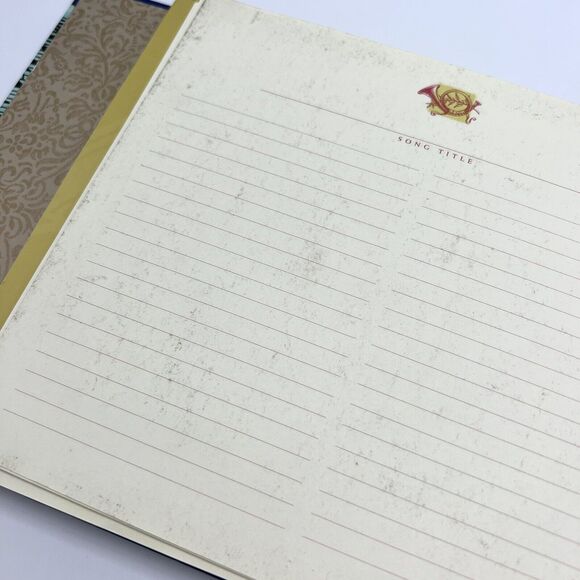 SONG TITLE